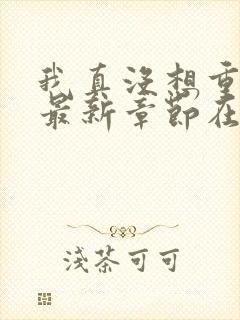 我真没想重
最新章节在
淺茶可可